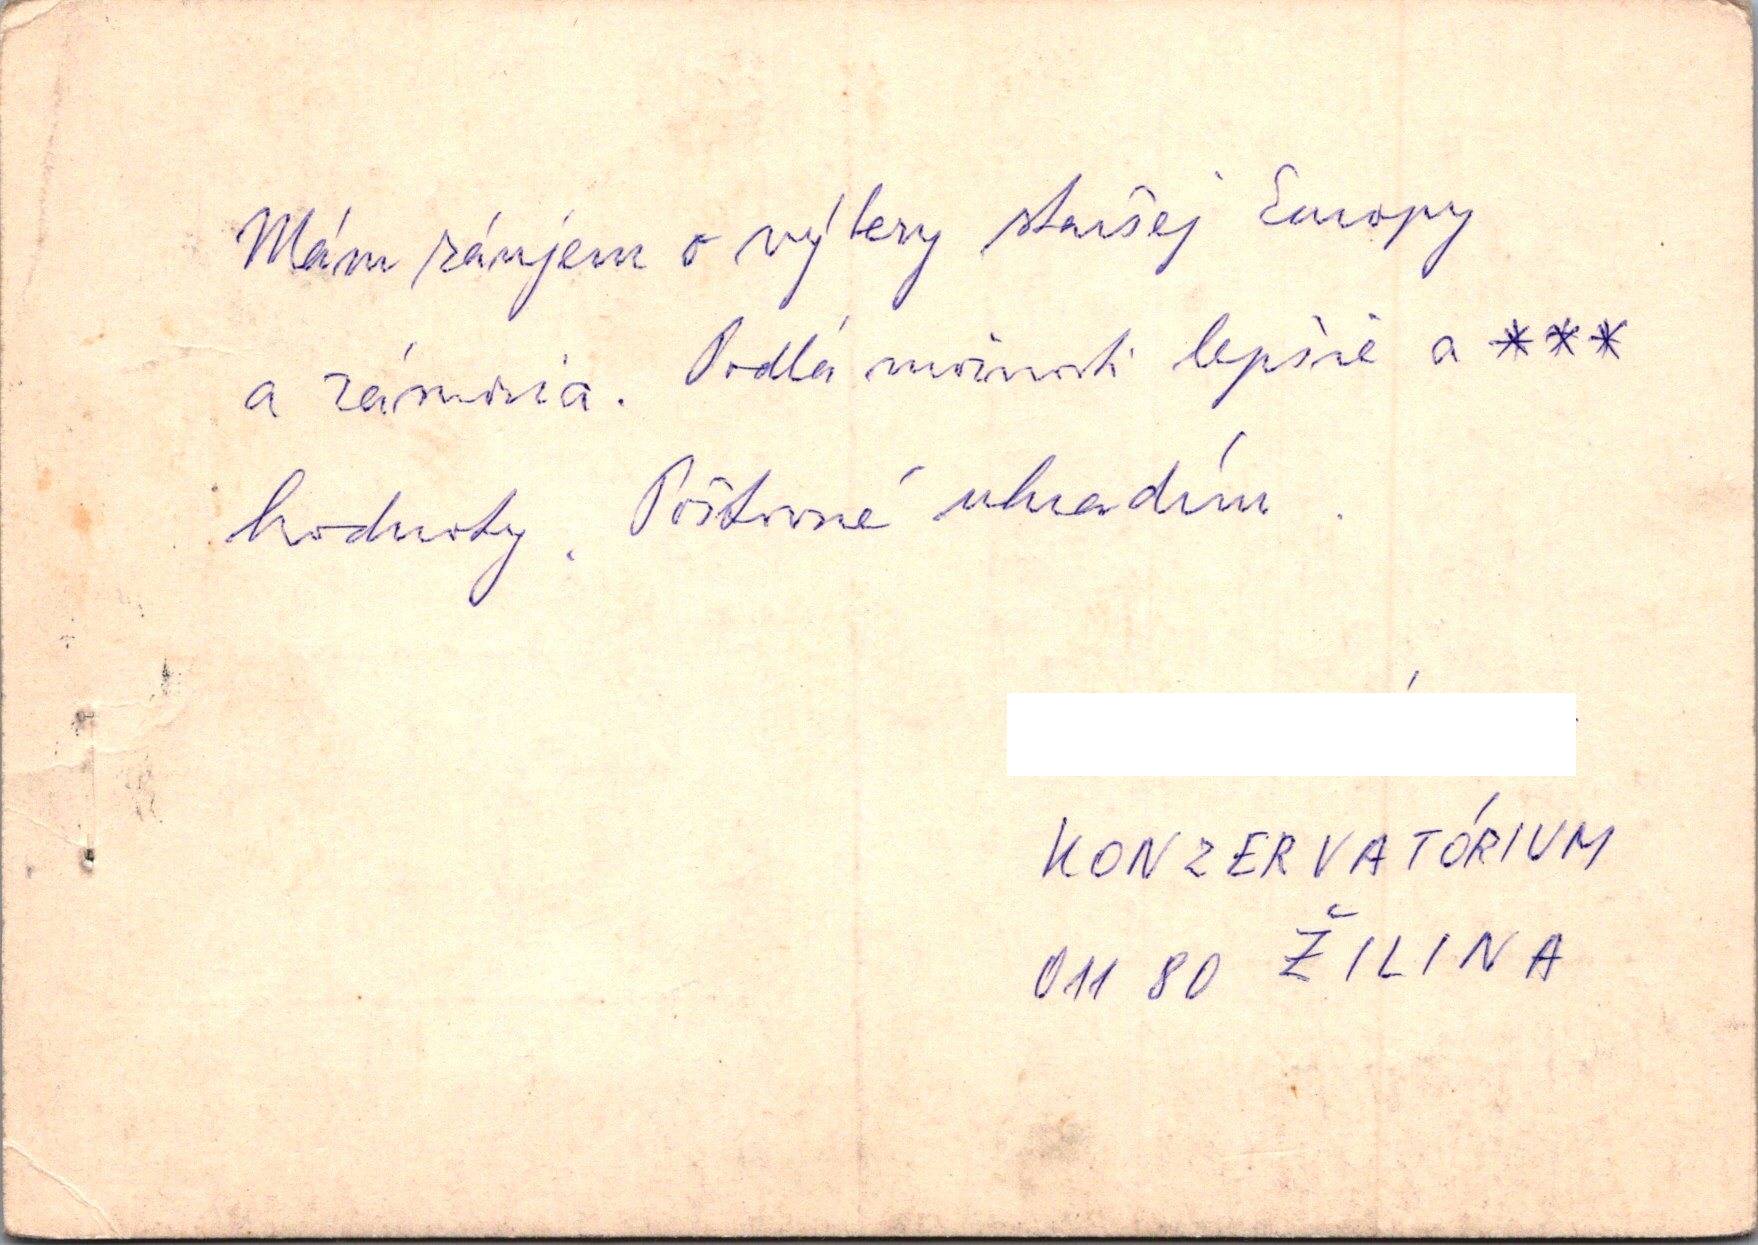 Mám záujem o výbery staršej Európy
a zámoria. Podlá možnosti lepšie a ***
hodnoty. Poštovné uhradím.
KONZERVATÓRIUM
011 80 ŽILINA